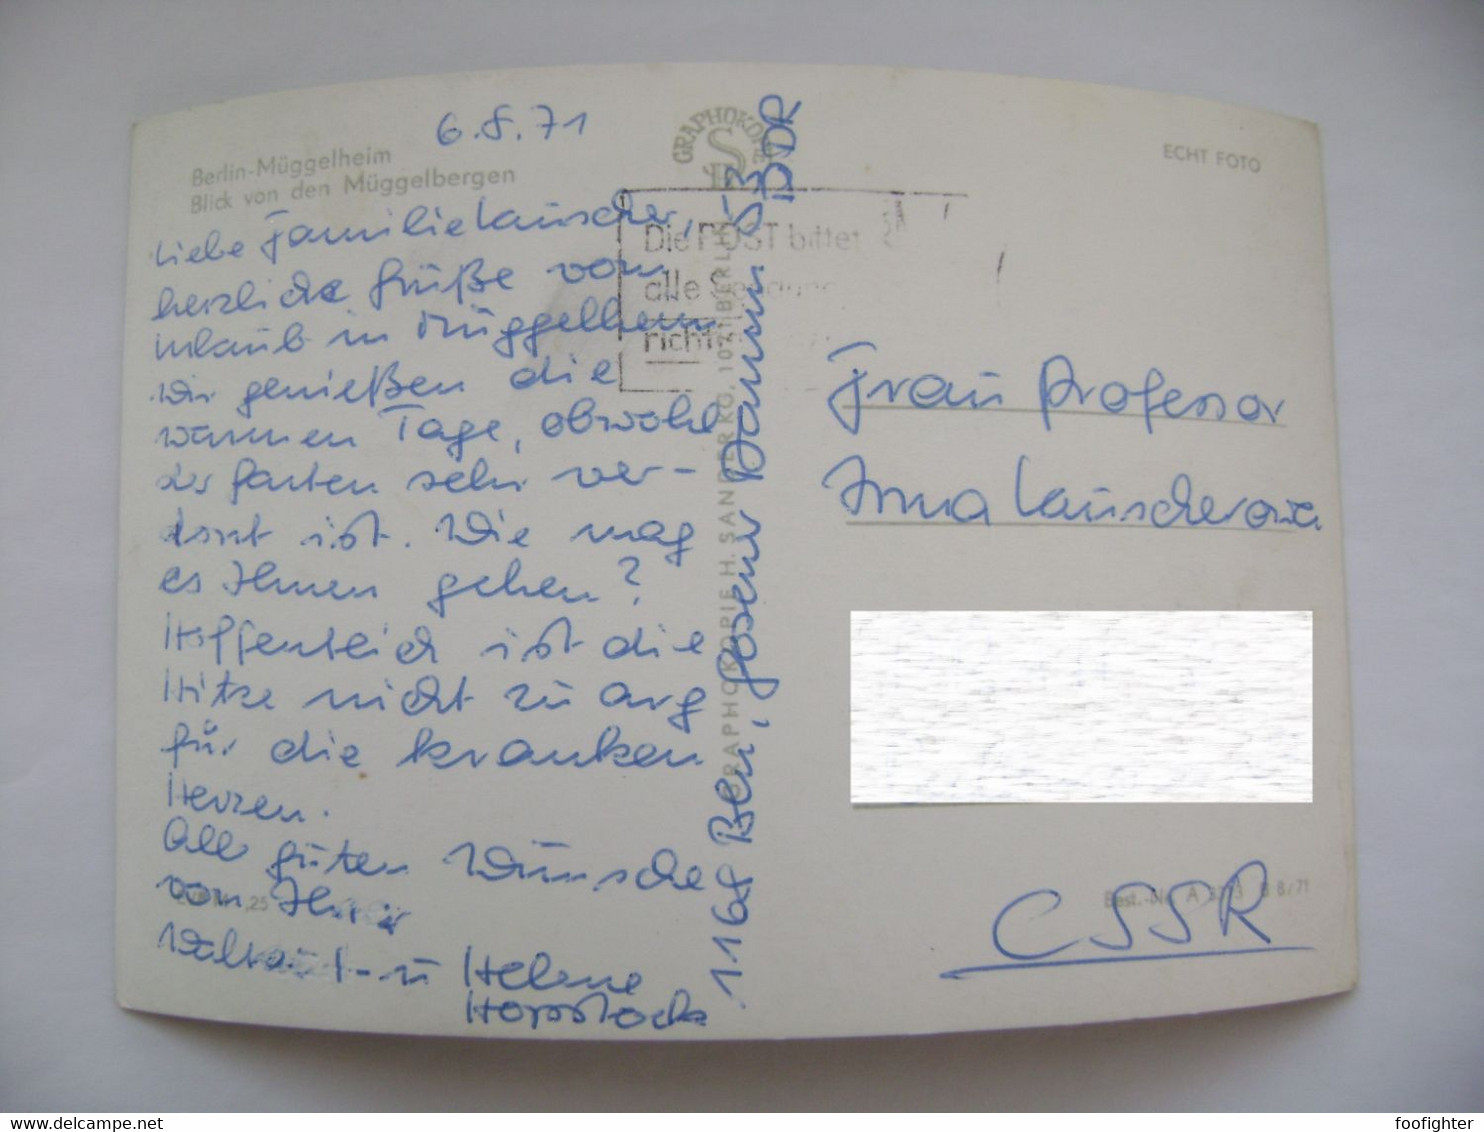 6.8.71
Berlin-Müggelheim
Blick von den Müggelbergen
Liebe Familie Lauscher,
herzliche Grüße vom
Urlaub in Müggelheim
Wir genießen die
warmen Tage, obwohl
der Garten sehr ver-
dorrt ist. Wie mag
es Ihnen gehen?
Hoffentlich ist die
Hitze nicht zu arg
für die kranken
Herzen.
Alle guten Wünsche
von Ihrer
Waltraut - u Helene
Horstock
GRAPHOKOPIE
GRAPHOKOPIE H. SANDER KG, 1071 BERLIN
1168 Bln, Gosener Damm 53
DDR
Die POST bittet
alle
richt
ECHT FOTO
Frau Professor
Irma Lauscherova
CSSR
Best.-Nr. A B 8/71
,25
foofighter